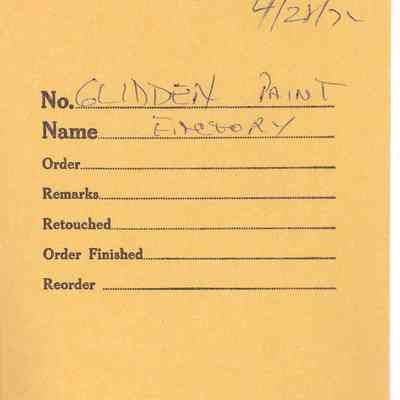 4/28/72
No. GLIDDEN PAINT
Name
Order
Remarks
Retouched
Order Finished
Reorder